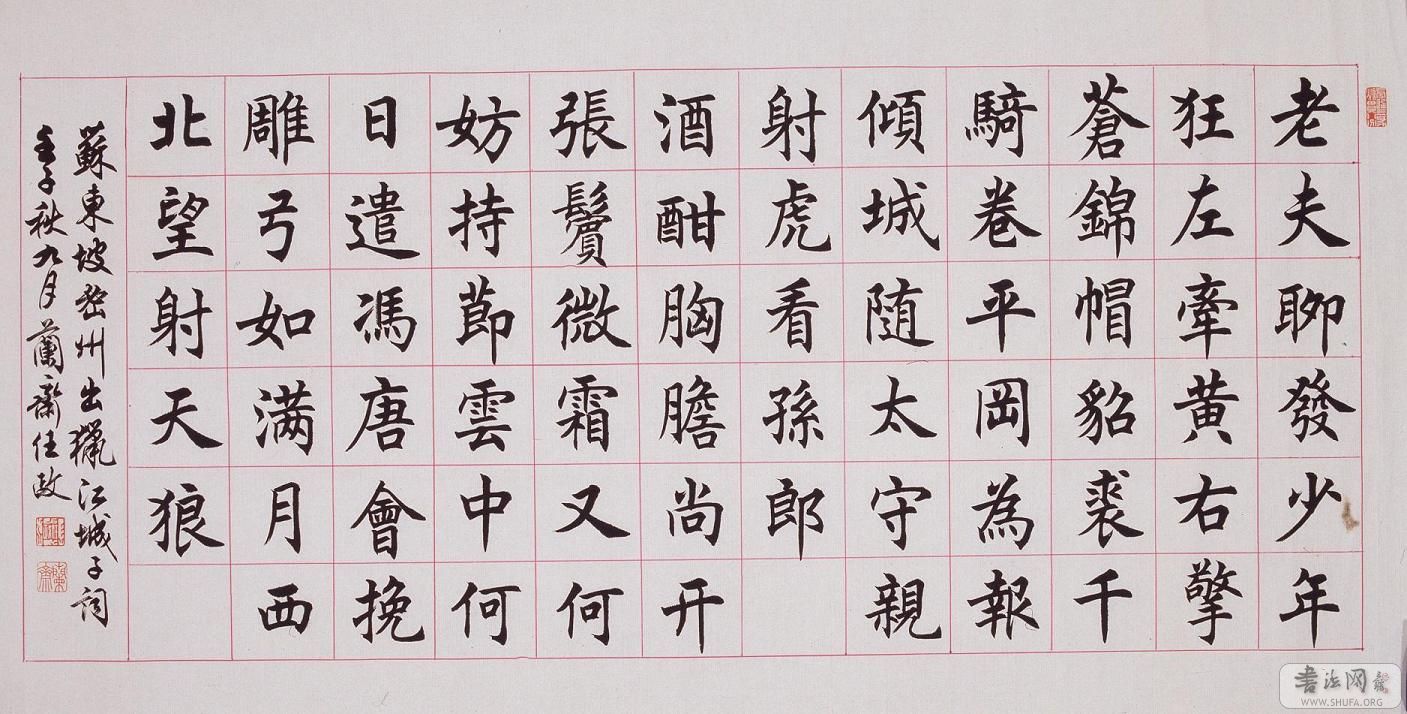 老夫聊發少年
狂左牽黄右擎
蒼錦帽貂裘千
騎卷平岡為報
傾城随太守親
射虎看孫郎
酒酣胸膽尚开
張鬢微霜又何
妨持莭雲中何
日遣馮唐會挽
雕弓如满月西
北望射天狼
蘇東坡密州出獵江城子詞
壬子秋九月蘭齋任政
書法网
WWW.SHUFA.ORG